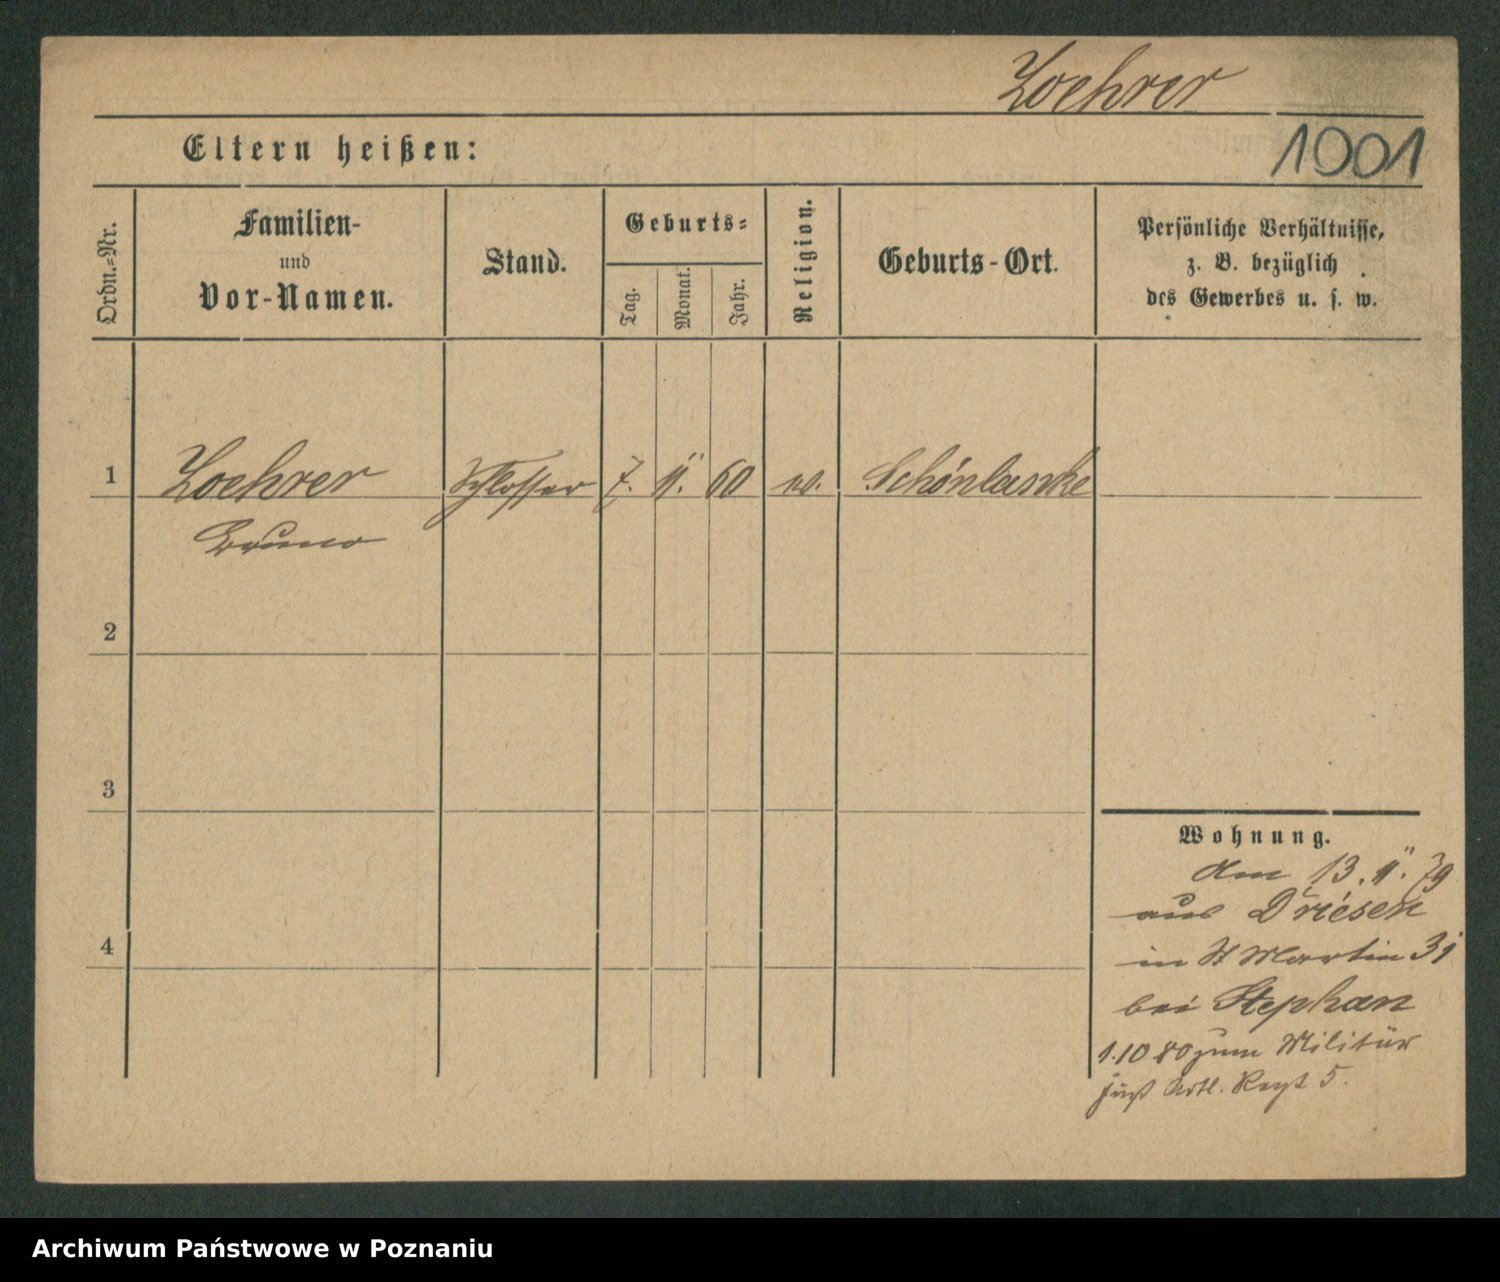 Loehrer
1001
Eltern heißen:
Ordn.=Nr.
Familien-
und
Vor-Namen.
Stand.
Geburts=
Tag.
Monat.
Jahr.
Religion.
Geburts-Ort.
Persönliche Verhältnisse,
z. B. bezüglich
des Gewerbes u. s. w.
1 Loehrer Schlosser 7. 11. 60 ev. Schönlanke
Bruno
2
3
4
Wohnung.
Am 13. 11. 79
aus Driesen
in St Martin 31
bei Stephan
1.10 80 zum Militär
Fuß Artl. Regt 5.
Archiwum Państwowe w Poznaniu